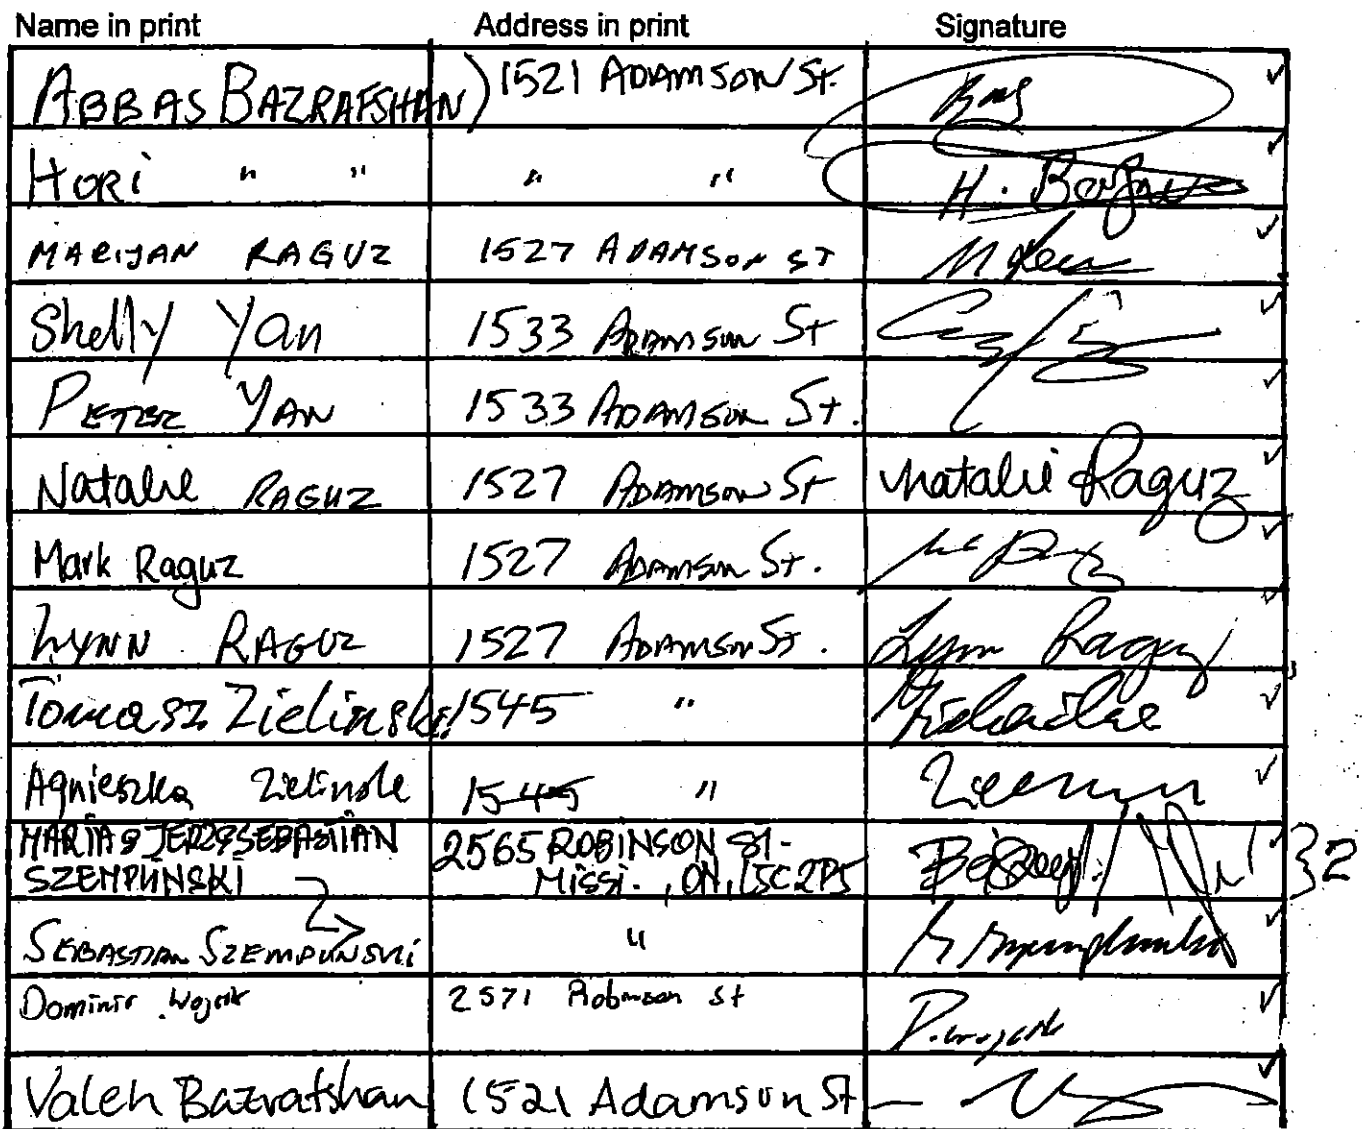 Name in print Address in print Signature
ABBAS BAZRAFSHAN) 1521 ADAMSON St.
HORI " " " " H.
MARIJAN RAGUZ 1527 ADAMSON ST
Shelly Yan 1533 ADAMSON St
PETER YAN 1533 ADAMSON St.
Natalie RAGUZ 1527 ADAMSON St Natalie Raguz
Mark Raguz 1527 ADAMSON St.
LYNN RAGUZ 1527 ADAMSON St. Lynn Raguz
Tomasz Zielinski 1545 "
Agnieszka 1545 "
MARIA & JERZY SEBASTIAN 2565 ROBINSON ST.
SZEMPLINSKI Missi., ON, L5C 2P5 } 2
SEBASTIAN SZEMPLINSKI "
Dominik Wojcik 2571 Robinson St D. Wojcik
Valeh Bazrafshan 1521 Adamson St